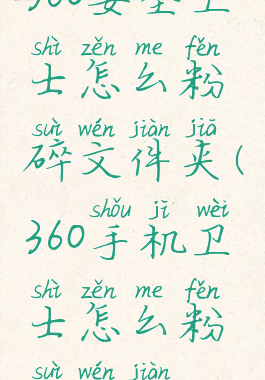 360安全卫
shì zěn me fěn
士怎么粉
suì wén jiàn jiā
碎文件夹(
shǒu jī wèi
360手机卫
shì zěn me fěn
士怎么粉
suì wén jiàn